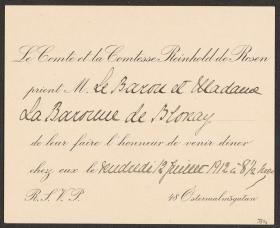 Le Comte et la Comtesse Reinhold de Rosen
prient M. Le Baron et Madame
La Baronne de Blonay
de leur faire l'honneur de venir diner
chez eux le vendredi 12 Janvier 1912 à 8 1/2 heures
R. S. V. P. 48 Ostermalmsgatan